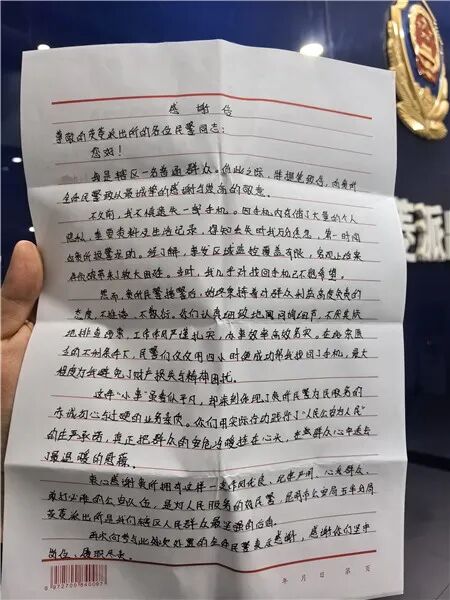 感谢信
尊敬的芙蓉派出所的各位民警同志：
您好！
我是辖区一名普通群众。在此之际，特提笔致信，向贵所
全体民警致以最诚挚的感谢与崇高的敬意。
不久前，我不慎遗失一部手机。因手机内存储了大量的个人
隐私、重要资料及生活记录，得知丢失时我万分焦急，第一时间
向贵所报警求助。经了解，事发区域监控覆盖有限，客观上给案
件侦破带来了较大困难。当时，我几乎对找回手机已不抱希望。
然而，贵所民警接警后，始终秉持着对群众利益高度负责的
态度，不推诿、不敷衍。你们认真细致地询问细节，不厌其烦
地排查线索，工作作风严谨扎实，办事效率高效务实。在
的不利条件下，民警们仅仅用四小时便成功帮我找回了手机，最大
程度为我避免了财产损失与精神困扰。
这件“小事”虽看似平凡，却深刻体现了贵所民警为民服务的
赤诚初心与过硬的业务素质。你们用实际行动践行了“人民公安为人民”
的庄严承诺，真正把群众的安危冷暖挂在心头，在我群众心中送去
了最温暖的慰藉。
衷心感谢贵所拥有这样一支作风优良、纪律严明、心系群众、
敢打必胜的公安队伍，是对人民服务的好民警，昆明市公安局五华分局
芙蓉派出所是我们辖区人民群众最坚强的后盾。
再次向参与此次处置的全体民警表示感谢，感谢你们坚守
岗位，履职尽责。
年 月 日 第 页
派